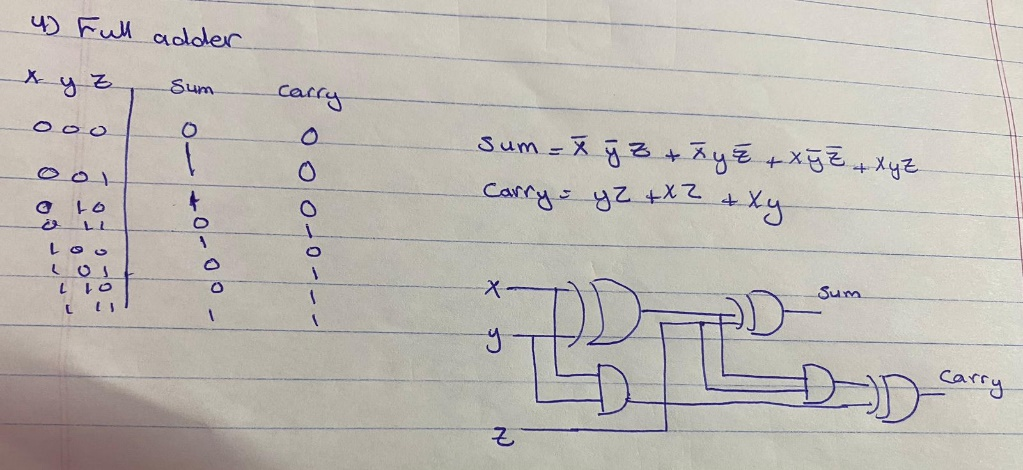 4) Full adder
x y z Sum Carry
0 0 0 0 0
0 0 1 1 0
0 1 0 1 0
0 1 1 0 1
1 0 0 1 0
1 0 1 0 1
1 1 0 0 1
1 1 1 1 1
Sum = x̄ ȳ z + x̄ y z̄ + x ȳ z̄ + x y z
Carry = yz + xz + xy
x
Sum
y
Carry
z